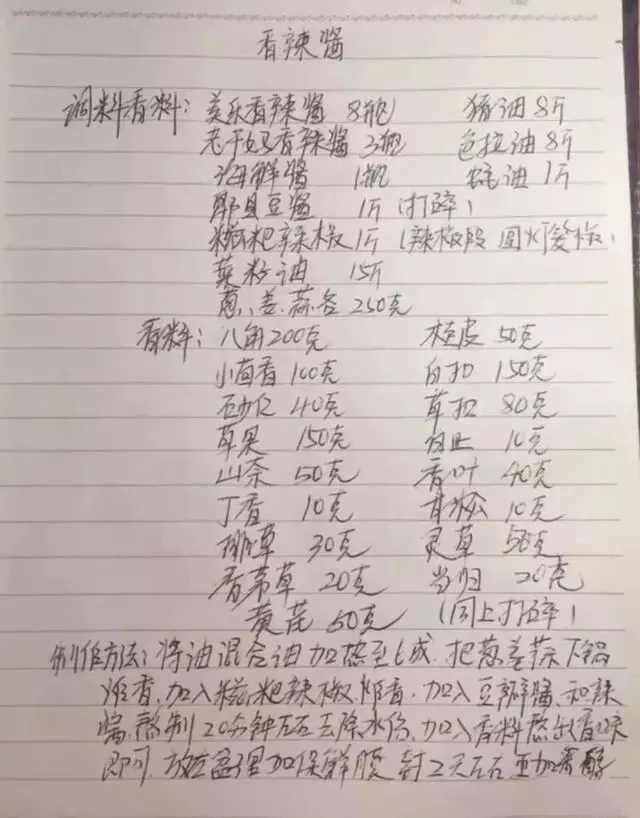 香辣酱
调料香料：美乐香辣酱 8瓶 猪油 8斤
老干妈香辣酱 3瓶 色拉油 8斤
海鲜酱 1瓶 蚝油 1斤
郫县豆酱 1斤（打碎）
糍粑辣椒 1斤（辣椒段 圆灯笼椒）
菜籽油 15斤
葱、姜、蒜各 250克
香料：八角 200克 桂皮 50克
小茴香 100克 白扣 150克
砂仁 40克 草扣 80克
草果 150克 白芷 10克
山奈 50克 香叶 40克
丁香 10克 甘松 10克
排草 30克 灵草 50克
香茅草 20克 当归 20克
黄芪 50克 （同上打碎）
制作方法：将油混合油加热至6成，把葱姜蒜下锅
炸香，加入糍粑辣椒炸香，加入豆瓣酱和辣
酱，熬制20分钟左右去除水份，加入香料熬出香味
即可，放在盆里加保鲜膜封2天左右更加香醇